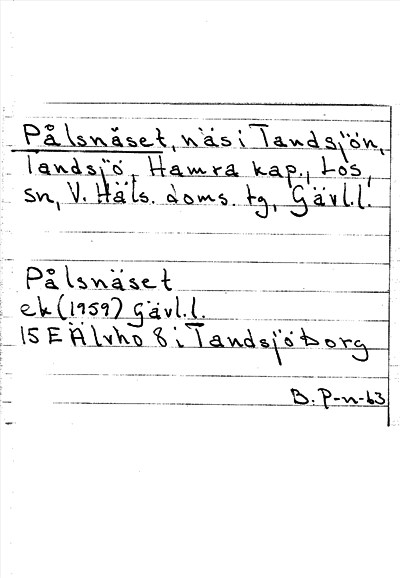 Pålsnäset, näs i Tandsjön,
Tandsjö, Hamra kap., Los,
sn, V. Häls. doms. tg, Gävl.l.
Pålsnäset
ek (1959) Gävl.l.
15 E Älvho 8 i Tandsjöborg
B. P-n-63